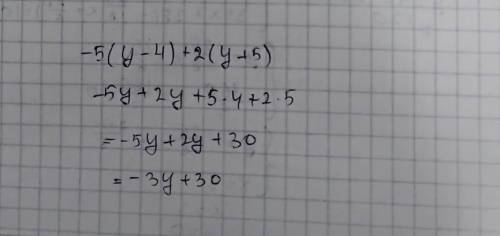 -5(y-4)+2(y+5)
-5y+2y+5·4+2·5
=-5y+2y+30
=-3y+30